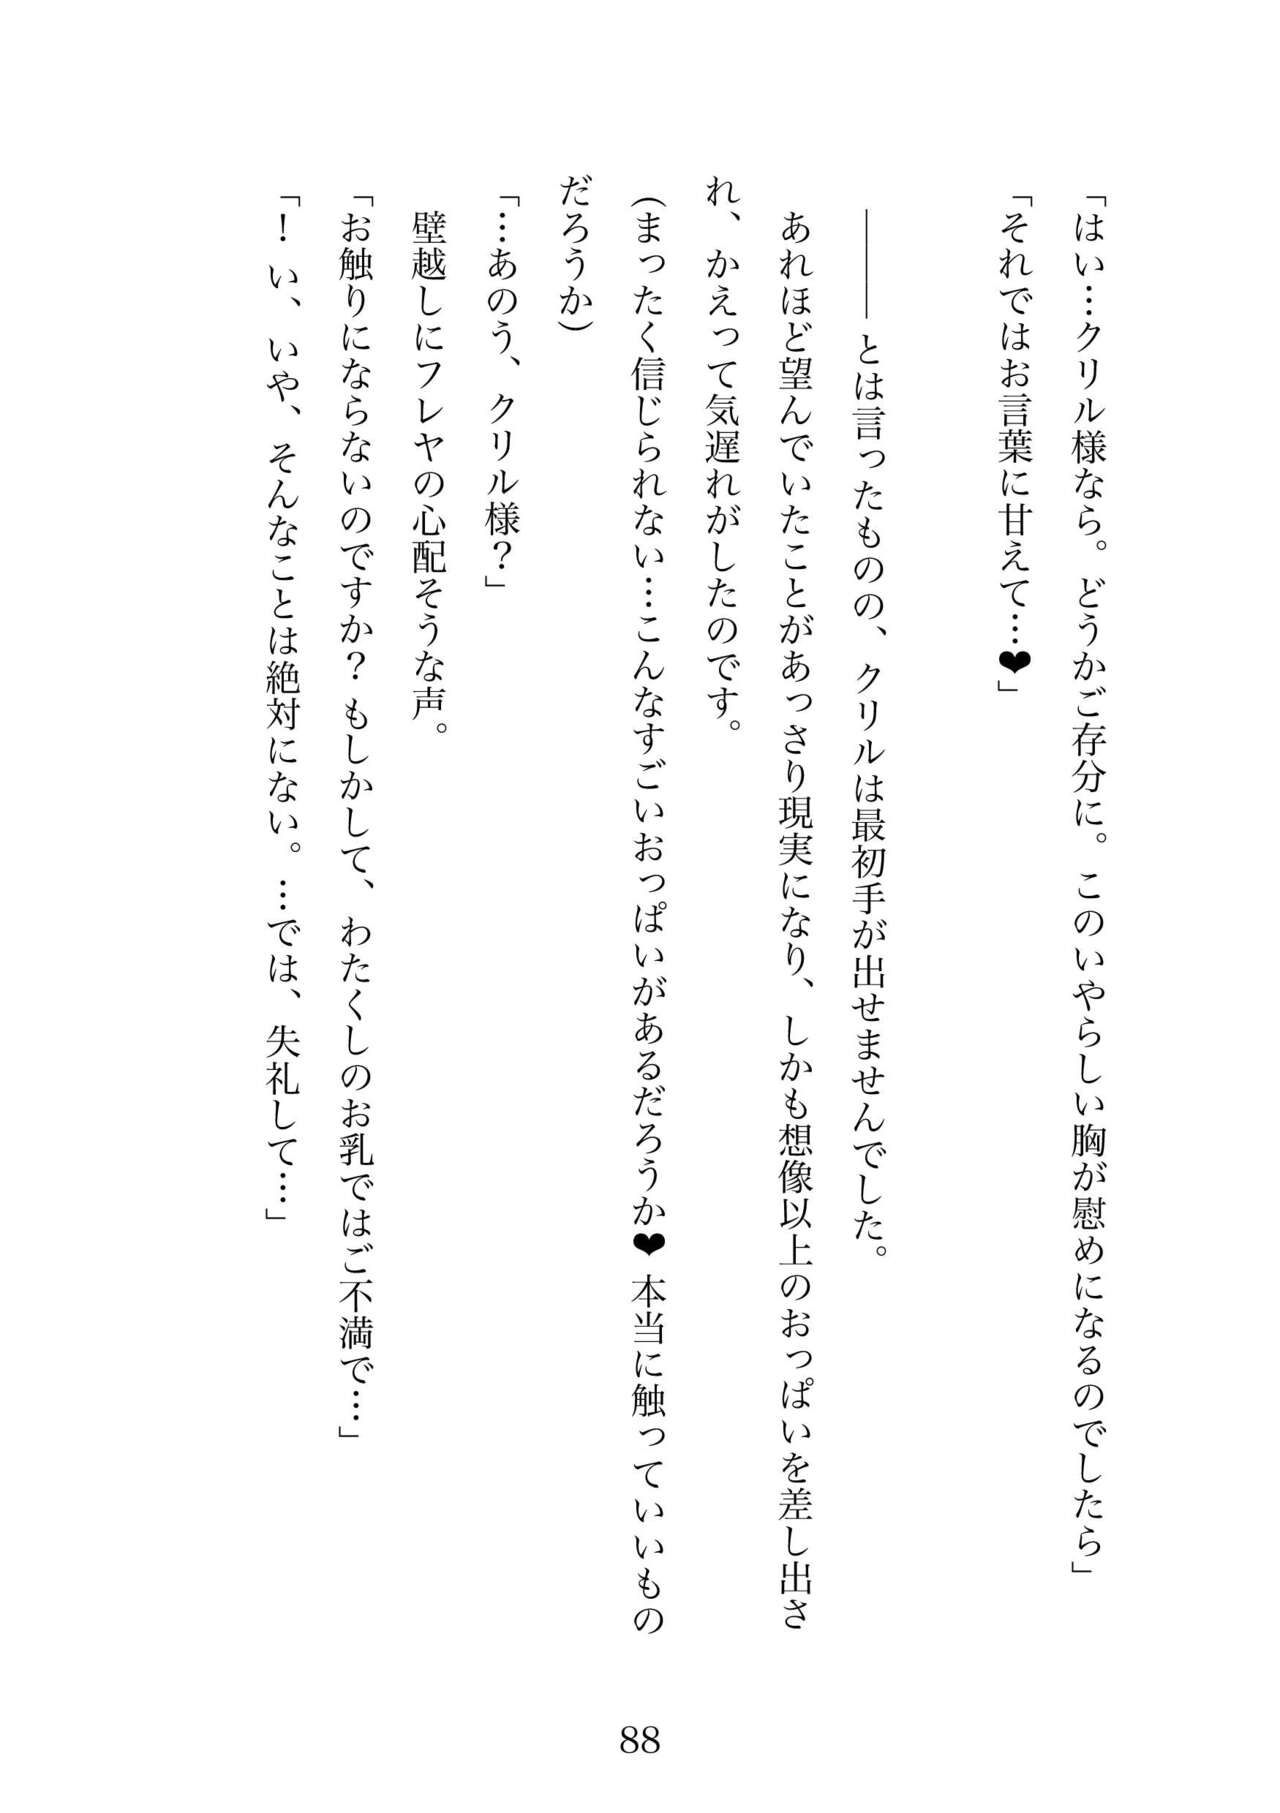 「はい…クリル様なら。どうかご存分に。このいやらしい胸が慰めになるのでしたら」
「それではお言葉に甘えて…❤」
――とは言ったものの、クリルは最初手が出せませんでした。
あれほど望んでいたことがあっさり現実になり、しかも想像以上のおっぱいを差し出さ
れ、かえって気遅れがしたのです。
(まったく信じられない…こんなすごいおっぱいがあるだろうか❤ 本当に触っていいもの
だろうか)
「…あのう、クリル様?」
壁越しにフレヤの心配そうな声。
「お触りにならないのですか? もしかして、わたくしのお乳ではご不満で…」
「! い、いや、そんなことは絶対にない。…では、失礼して…」
88